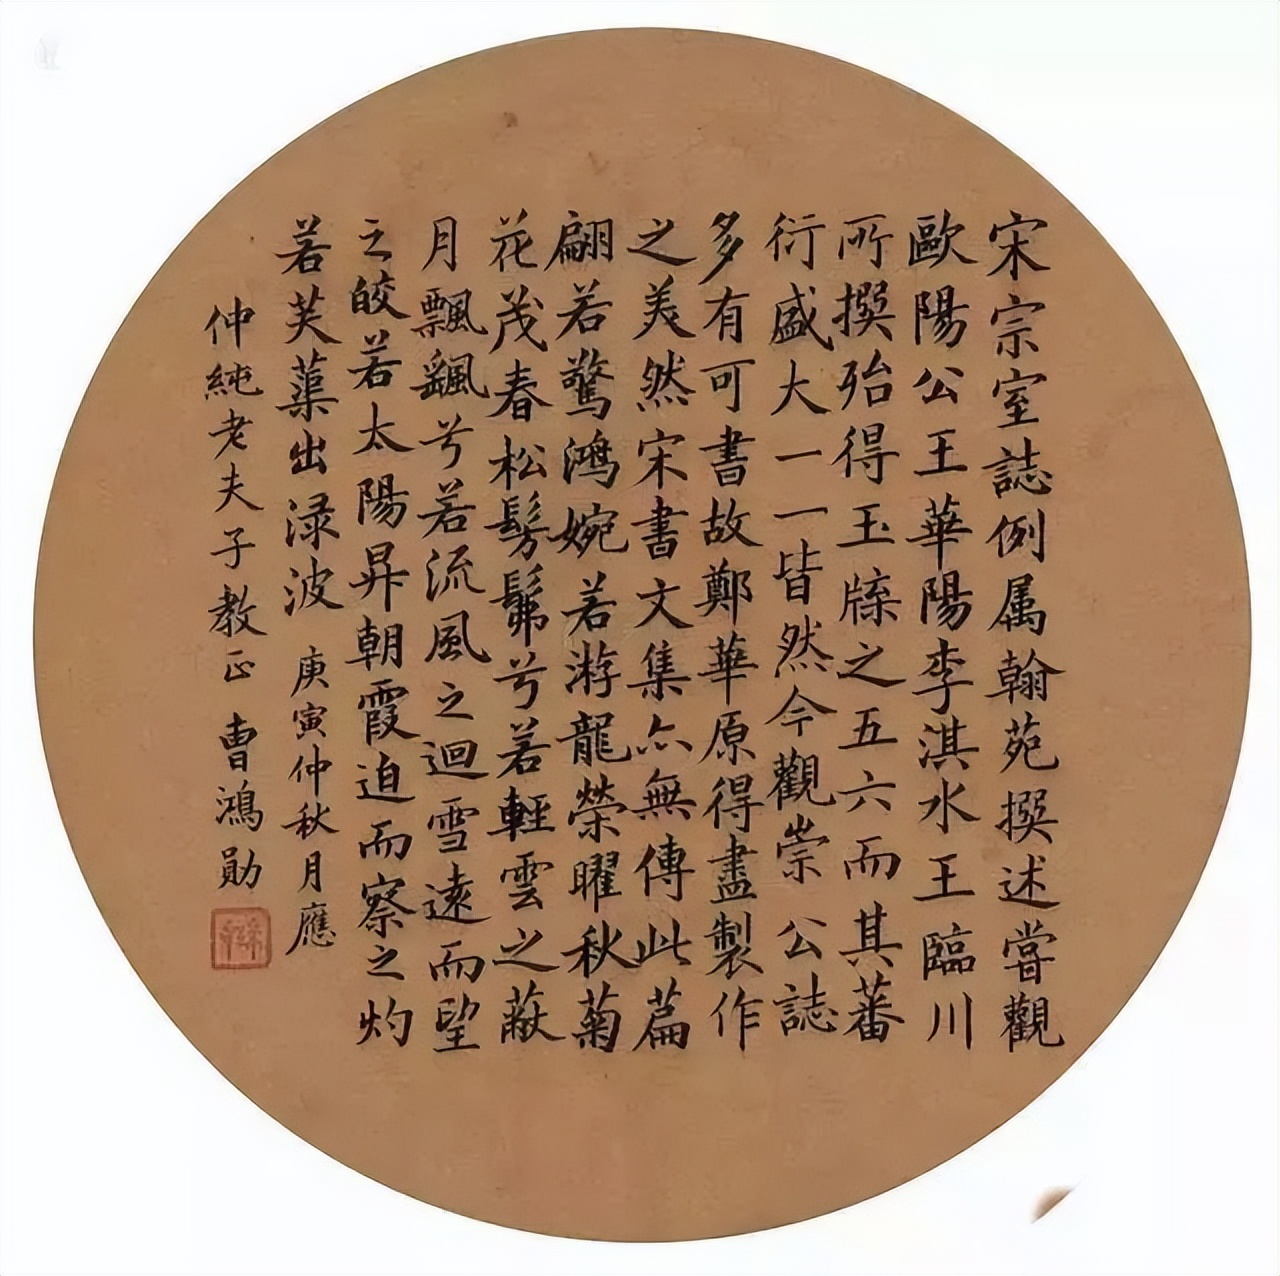 宋宗室誌例属翰苑撰述嘗觀
歐陽公王華陽李淇水王臨川
所撰殆得玉牒之五六而其蕃
衍盛大一一皆然今觀崇公誌
多有可書故鄭華原得盡製作
之美然宋書文集亦無傳此篇
翩若驚鴻婉若游龍榮曜秋菊
花茂春松髣髴兮若輕雲之蔽
月飄颻兮若流風之迴雪遠而望
之皎若太陽昇朝霞迫而察之灼
若芙蕖出淥波 庚寅仲秋月應
仲純老夫子教正 曹鴻勛